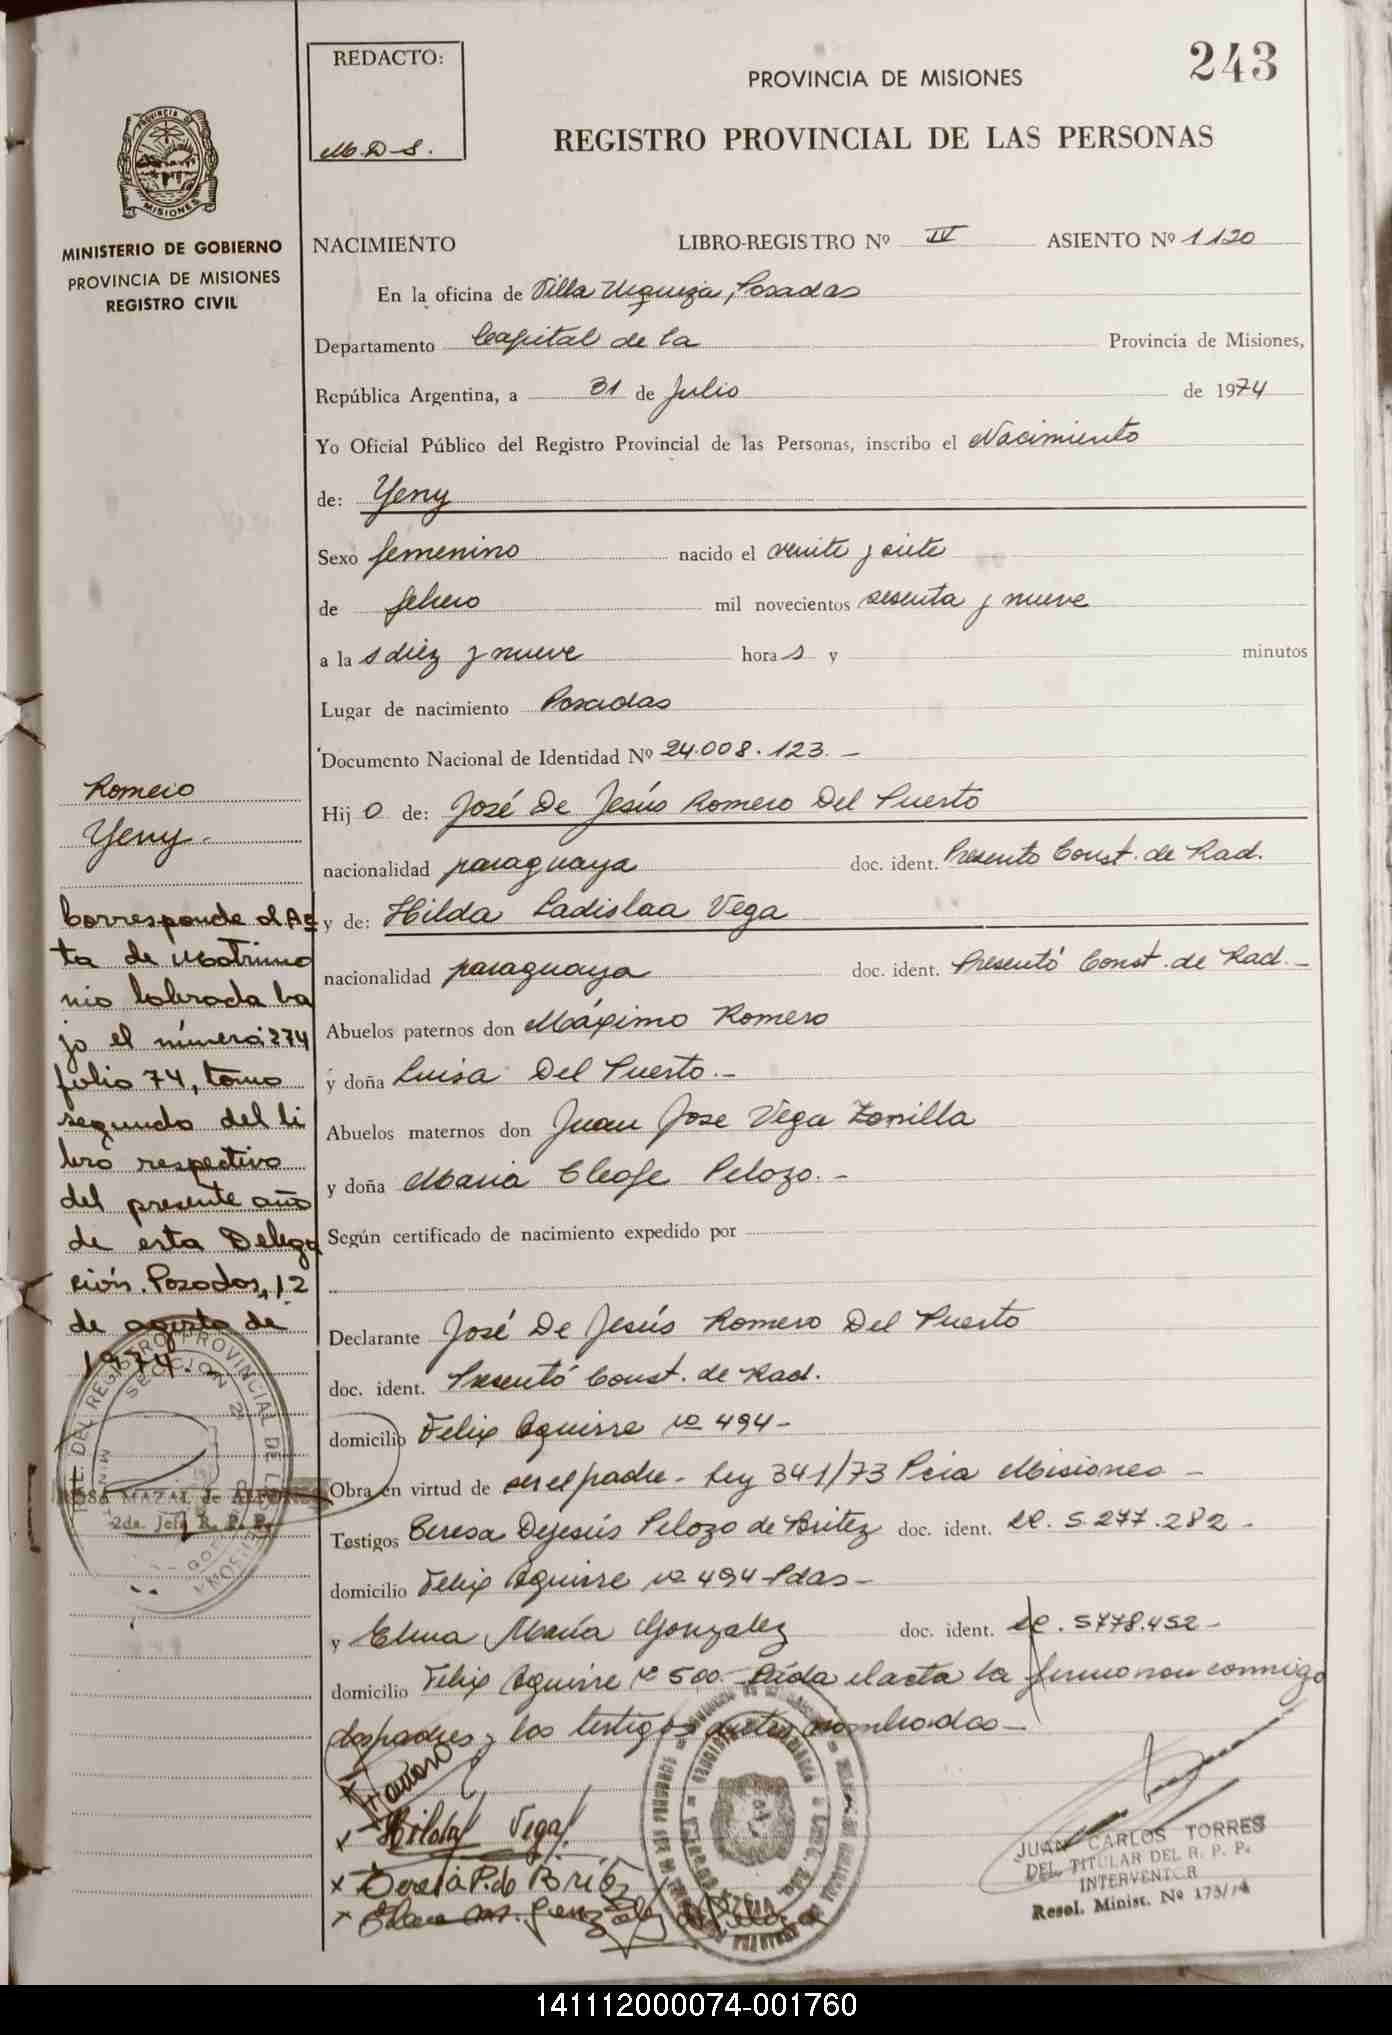 243
REDACTO:
M.D.S.
PROVINCIA DE MISIONES
REGISTRO PROVINCIAL DE LAS PERSONAS
PROVINCIA DE
MISIONES
MINISTERIO DE GOBIERNO
PROVINCIA DE MISIONES
REGISTRO CIVIL
NACIMIENTO LIBRO-REGISTRO Nº IV ASIENTO Nº 1120
En la oficina de Villa Urquiza, Posadas
Departamento Capital de la Provincia de Misiones,
República Argentina, a 31 de Julio de 1974
Yo Oficial Público del Registro Provincial de las Personas, inscribo el Nacimiento
de: Yeny
Sexo femenino nacido el veinte y siete
de febrero mil novecientos sesenta y nueve
a la s diez y nueve hora s y minutos
Lugar de nacimiento Posadas
Documento Nacional de Identidad Nº 24.008.123.-
Hij o de: José De Jesús Romero Del Puerto
nacionalidad paraguaya doc. ident. Presento Const. de Rad.
y de: Hilda Ladislaa Vega
nacionalidad paraguaya doc. ident. Presentó Const. de Rad.-
Abuelos paternos don Máximo Romero
y doña Luisa Del Puerto.-
Abuelos maternos don Juan Jose Vega Zorrilla
y doña Maria Cleofe Pelozo.-
Según certificado de nacimiento expedido por
Declarante José De Jesús Romero Del Puerto
doc. ident. Presentó Const. de Rad.
domicilio Felix Aguirre nº 494-
Obra en virtud de ser el padre - Ley 341/73 Pcia Misiones -
Testigos Teresa Dejesús Pelozo de Britez doc. ident. LC. 5.277.282-
domicilio Felix Aguirre nº 494-Pdas-
y Elma María Gonzalez doc. ident. LC. 5778.452-
domicilio Felix Aguirre nº 500- Leída el acta la firmaron conmigo
los padres y los testigos antes nombrados-
Romero
Yeny.-
Corresponde al Ac
ta de Matrimo
nio labrada ba
jo el número: 274
folio 74, tomo
segundo del li
bro respectivo
del presente año
de esta Delega
ción. Posadas, 12
de agosto de
1974.-
REGISTRO PROVINCIAL DE
SECCION 2ª
ROSA MAZAL de
2da. Jefa R. P. P.
x Hilda Vega
x Teresa P. de Britez
x
JUAN CARLOS TORRES
DEL TITULAR DEL R. P. P.
INTERVENTOR
Resol. Minist. Nº 173/74
141112000074-001760